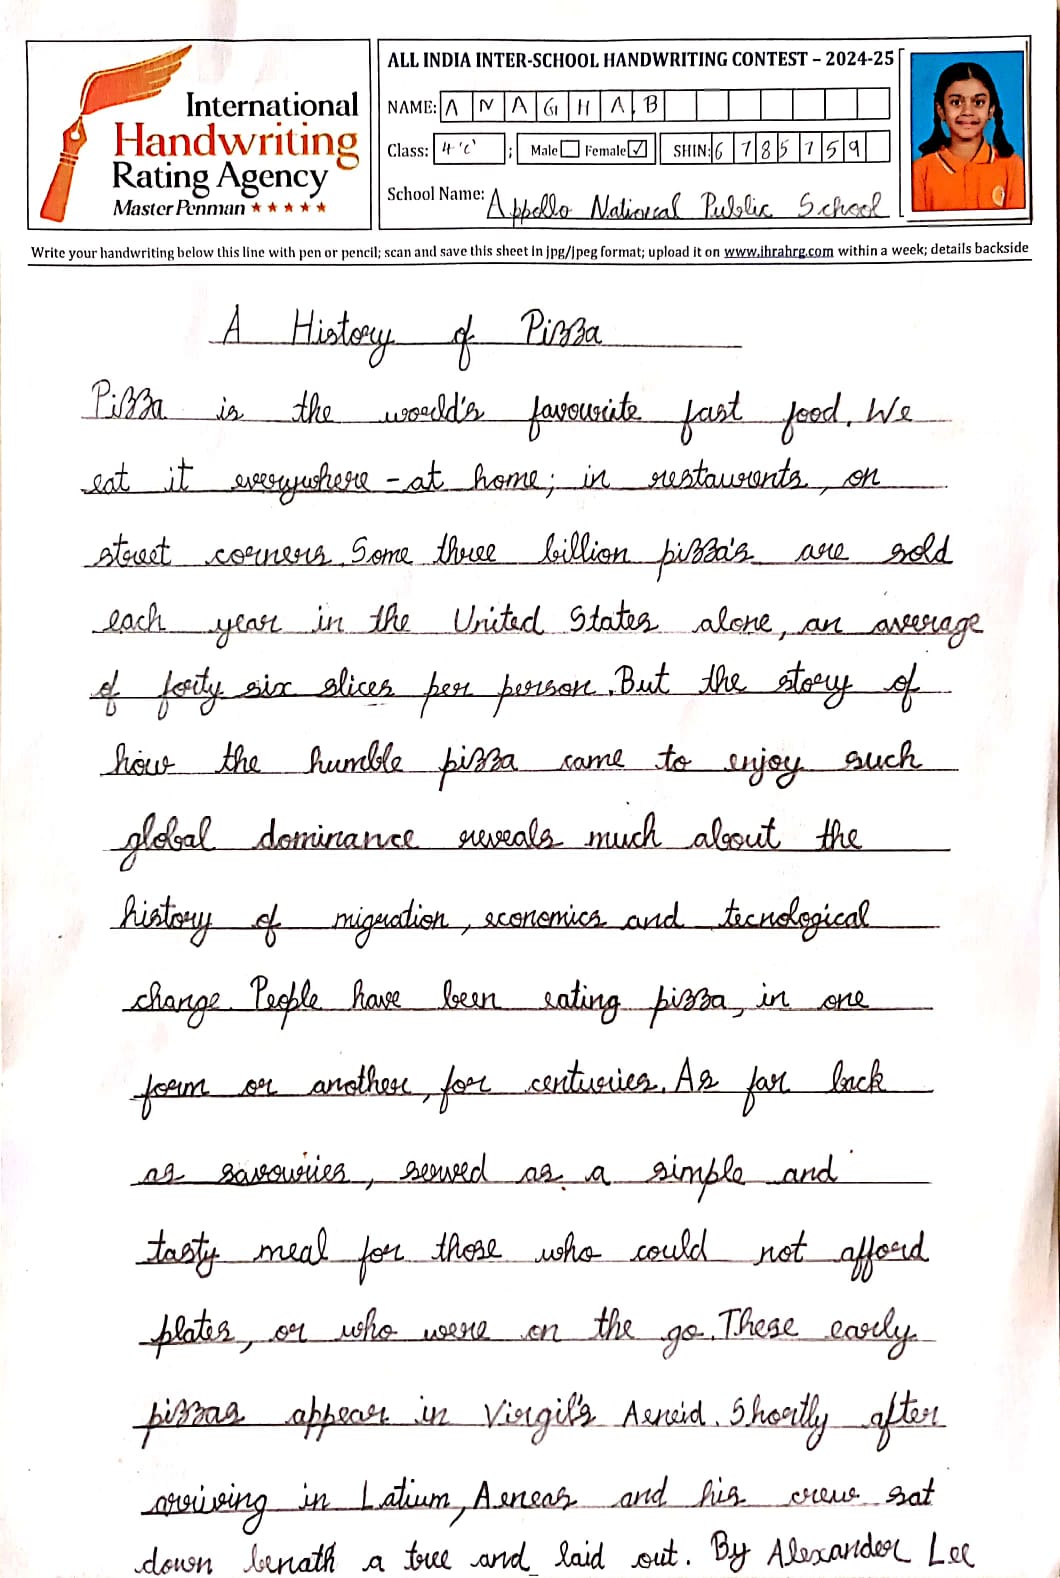 International
Handwriting
Rating Agency
Master Penman ★★★★★
ALL INDIA INTER-SCHOOL HANDWRITING CONTEST – 2024-25
NAME: ANAGHA B
Class: 4 'c' ; Male ☐ Female ☑ SHIN: 67857759
School Name: Appollo National Public School
Write your handwriting below this line with pen or pencil; scan and save this sheet in jpg/jpeg format; upload it on www.ihrahrg.com within a week; details backside
A History of Pizza
Pizza is the world's favourite fast food. We
eat it everywhere – at home; in restaurants, on
street corners. Some three billion pizza's are sold
each year in the United States alone, an average
of forty six slices per person. But the story of
how the humble pizza came to enjoy such
global dominance reveals much about the
history of migration, economics and tecnological
change. People have been eating pizza, in one
form or another, for centuries. As far back
as savouries, served as a simple and
tasty meal for those who could not afford
plates, or who were on the go. These early
pizzas appear in Virgil's Aeneid. Shortly after
arriving in Latium, Aeneas and his crew sat
down benath a tree and laid out. By Alexander Lee